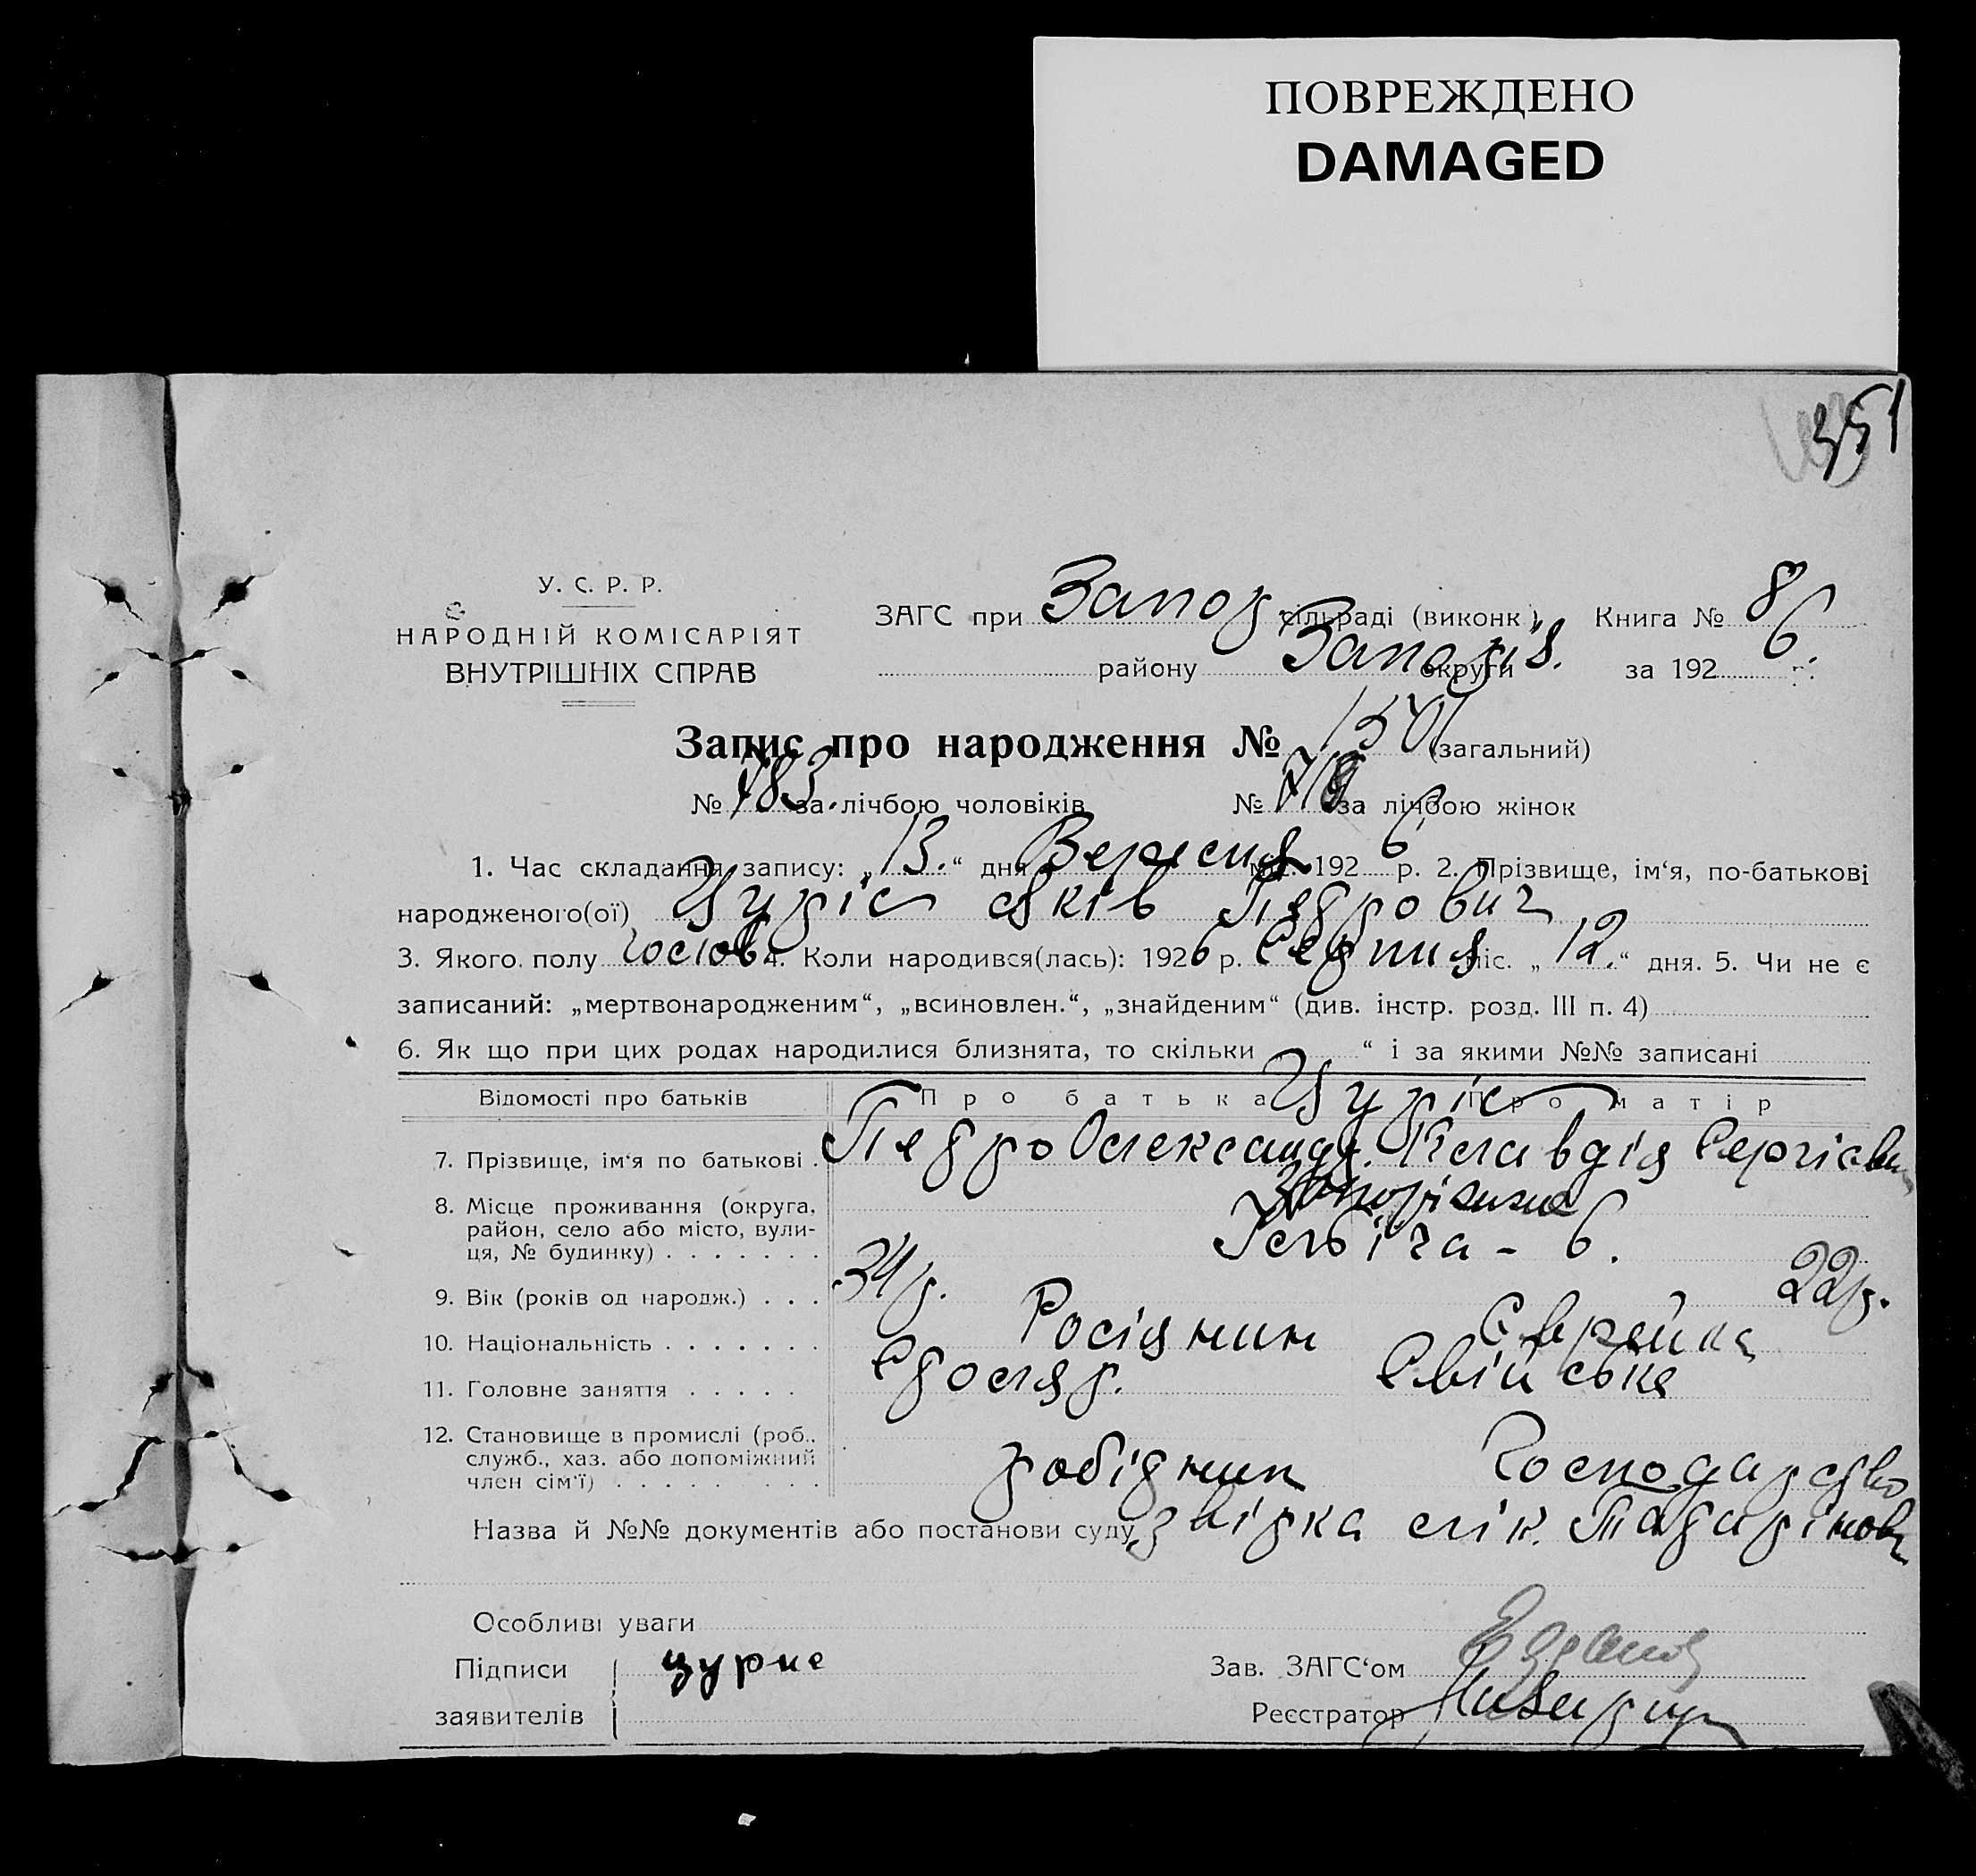 ПОВРЕЖДЕНО
DAMAGED
351
У. С. Р. Р.
НАРОДНІЙ КОМІСАРІЯТ
ВНУТРІШНІХ СПРАВ
ЗАГС при Запор сільраді (виконк.) Книга № 8
району Запоріз. округи за 1926 р.
Запис про народження № (загальний)
№ 783. за лічбою чоловіків № за лічбою жінок
1. Час складання запису: „13.“ дня Вересня міс. 1926 р. 2. Прізвище, ім‘я, по-батькові
народженого(ої) Цуріс Яків Петрович
3. Якого полу чолов 4. Коли народився(лась): 1926 р. Серпня міс. „12.“ дня. 5. Чи не є
записаний: „мертвонародженим“, „всиновлен.“, „знайденим“ (див. інстр. розд. III п. 4)
6. Як що при цих родах народилися близнята, то скільки „ “ і за якими №№ записані
Відомості про батьків Про батька Про матір
Цуріс
7. Прізвище, ім‘я по батькові . Петро Олександр. Клавдія Сергієвн
8. Місце проживання (округа, район, село або місто, вулиця, № будинку) . . . . . . . Запоріжжя
6.
9. Вік (років од народж.) . . . 34 р. 22 р.
10. Національність . . . . . . . Росіянин Єврейка
11. Головне заняття . . . . . Столяр. Свійське
12. Становище в промислі (роб., служб., хаз. або допоміжний член сім‘ї) . . . . . . . . робітник Господарство
Назва й №№ документів або постанови суду звірка лік.
Особливі уваги
Підписи заявителів цурис
Зав. ЗАГС‘ом
Реєстратор